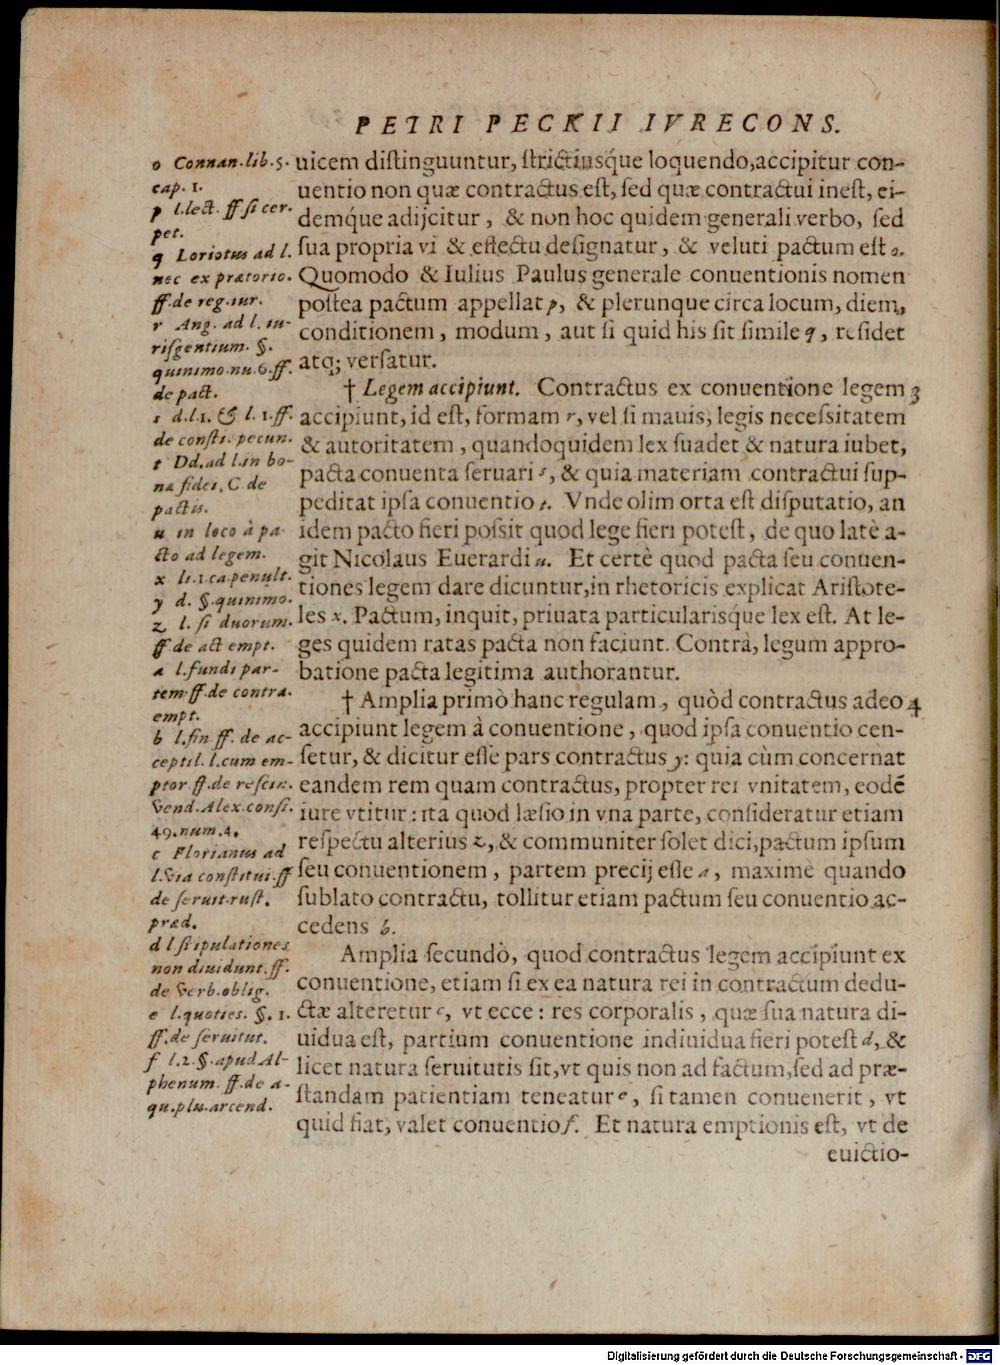 PETRI PECKII IVRECONS.
o Connan.lib.5.
cap. 1.
p l.lect. ff si cer.
pet.
q Loriotus ad l.
nec ex prætorio.
ff.de reg.iur.
r Ang. ad l. iu-
risgentium. §.
quinimo.nu.6.ff.
de pact.
s d.l.1. & l. 1.ff.
de consti. pecun.
t Dd.ad l.in bo-
næ fidei. C. de
pactis.
u in loco à pa-
cto ad legem.
x li.1.ca.penult.
y d. §.quinimo.
z l. si duorum.
ff de act empt.
a l.fundi par-
tem.ff.de contra.
empt.
b l.fin ff. de ac-
ceptil. l.cum em-
ptor ff.de rescin.
vend.Alex.consi.
49.num.4.
c Florianus ad
l.via constitui.ff
de seruit.rust.
præd.
d l.stipulationes
non diuidunt.ff.
de verb.oblig.
e l.quoties. §. 1.
ff.de seruitut.
f l.2.§.apud Al-
phenum. ff.de a-
qu.plu.arcend.
uicem distinguuntur, strictiusq́ue loquendo, accipitur con-
uentio non quæ contractus est, sed quæ contractui inest, ei-
demq́ue adijcitur, & non hoc quidem generali verbo, sed
sua propria vi & effectu designatur, & veluti pactum est o.
Quomodo & Iulius Paulus generale conuentionis nomen
postea pactum appellat p, & plerunque circa locum, diem,
conditionem, modum, aut si quid his sit simile q, residet
atq; versatur.
† Legem accipiunt. Contractus ex conuentione legem 3
accipiunt, id est, formam r, vel si mauis, legis necessitatem
& autoritatem, quandoquidem lex suadet & natura iubet,
pacta conuenta seruari s, & quia materiam contractui sup-
peditat ipsa conuentio t. Vnde olim orta est disputatio, an
idem pacto fieri possit quod lege fieri potest, de quo latè a-
git Nicolaus Euerardi u. Et certè quod pacta seu conuen-
tiones legem dare dicuntur, in rhetoricis explicat Aristote-
les x. Pactum, inquit, priuata particularisq́ue lex est. At le-
ges quidem ratas pacta non faciunt. Contrà, legum appro-
batione pacta legitima authorantur.
† Amplia primò hanc regulam, quòd contractus adeo 4
accipiunt legem à conuentione, quod ipsa conuentio cen-
setur, & dicitur esse pars contractus y: quia cùm concernat
eandem rem quam contractus, propter rei vnitatem, eodē
iure vtitur: ita quod læsio in vna parte, consideratur etiam
respectu alterius z, & communiter solet dici, pactum ipsum
seu conuentionem, partem precij esse a, maximè quando
sublato contractu, tollitur etiam pactum seu conuentio ac-
cedens b.
Amplia secundò, quod contractus legem accipiunt ex
conuentione, etiam si ex ea natura rei in contractum dedu-
ctæ alteretur c, vt ecce: res corporalis, quæ sua natura di-
uidua est, partium conuentione indiuidua fieri potest d, &
licet natura seruitutis sit, vt quis non ad factum, sed ad præ-
standam patientiam teneatur e, si tamen conuenerit, vt
quid fiat, valet conuentio f. Et natura emptionis est, vt de
euictio-
Digitalisierung gefördert durch die Deutsche Forschungsgemeinschaft - DFG